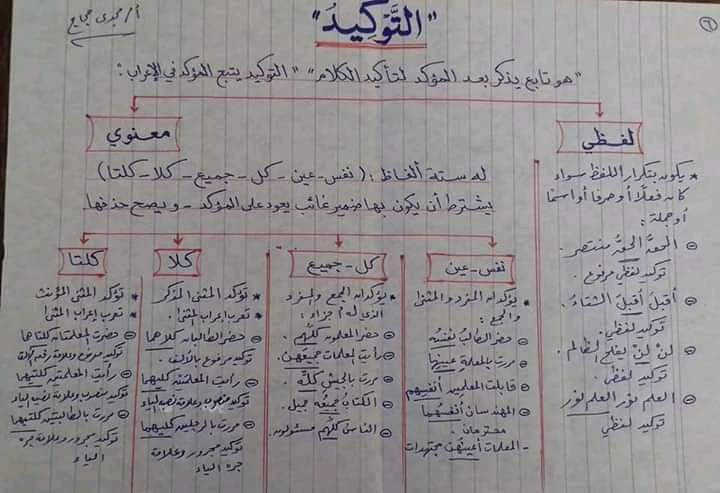 ٦
"التَّوْكِيدُ"
أ/مجدى
"هو تابع يذكر بعد المؤكد لتأكيد الكلام" "التوكيد يتبع المؤكد في الإعراب :
لفظي
* يكون بتكرار اللفظ سواء
كان فعلًا أو حرفا أو اسما
أو جملة :
⊖ الحقُّ الحقُّ منتصر .
توكيد لفظي مرفوع .
⊖ أقبلَ أقبلَ الشتاءُ .
توكيد لفظي .
⊖ لنْ لنْ يفلح الظالم .
توكيد لفظي .
⊖ العلم نور العلم نور
توكيد لفظي
معنوي
له ستة ألفاظ : ( نفس - عين - كل - جميع - كلا - كلتا )
يشترط أن يكون بها ضمير غائب يعود على المؤكد - و يصح حذفها .
نفس - عين
* يؤكدان المفرد والمثنى
والجمع :
⊖ حضر الطالبُ نفسُه
⊖ مررت بالمعلمة عينِها
⊖ قابلت المعلمين أنفسهم
⊖ المهندسان أنفسُهما
محترمان .
- المعلمات أعينُهن مجتهدات
كل - جميع
* يؤكدان الجمع والمفرد
الذى له أجزاء :
⊖ حضر المعلمون كلُّهم .
⊖ رأيت المعلمات جميعَهن .
⊖ مررت بالجيش كلِّه .
⊖ الكتابُ جميعُه جميل .
⊖ الناس كلُّهم مسئولون .
كلا
* تؤكد المثنى المذكر
* تعرب إعراب المثنى .
⊖ حضر الطالبان كلاهما
توكيد مرفوع بالألف .
⊖ رأيت المعلمَيْن كليهما
توكيد منصوب وعلامة نصبه الياء
⊖ مررت بالرجلين كليهما
توكيد مجرور وعلامة
جره الياء
كلتا
* تؤكد المثنى المؤنث
* تعرب إعراب المثنى
⊖ حضرت المعلمتان كلتاهما
توكيد مرفوع وعلامة رفعه الألف
⊖ رأيت المعلمتين كلتيهما
توكيد منصوب وعلامة نصبه الياء
⊖ مررت بالطالبتين كلتيهما
توكيد مجرور وعلامة جره
الياء